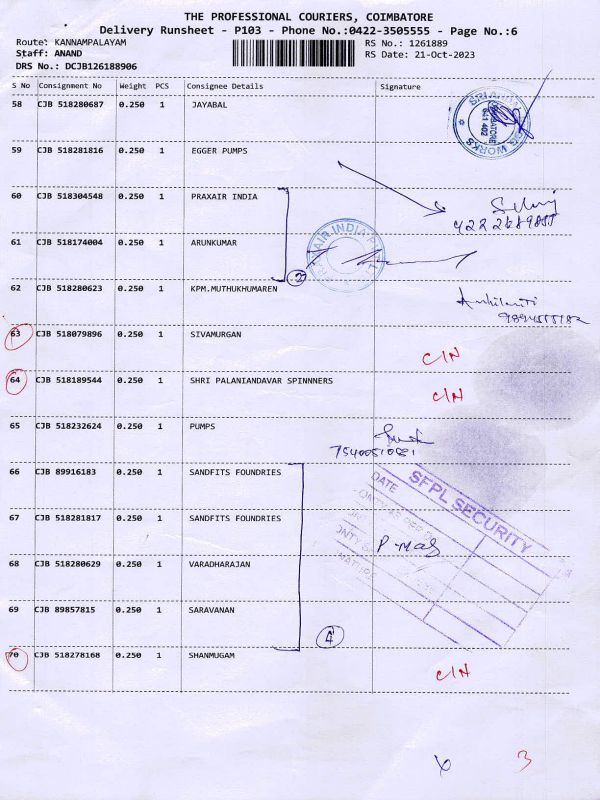 THE PROFESSIONAL COURIERS, COIMBATORE
Delivery Runsheet - P103 - Phone No.:0422-3505555 - Page No.:6
Route: KANNAMPALAYAM
RS No.: 1261889
Staff: ANAND
RS Date: 21-Oct-2023
DRS No.: DCJB126188906
S No Consignment No Weight PCS Consignee Details Signature
58 CJB 518280687 0.250 1 JAYABAL
59 CJB 518281816 0.250 1 EGGER PUMPS
60 CJB 518304548 0.250 1 PRAXAIR INDIA
61 CJB 518174004 0.250 1 ARUNKUMAR
2
62 CJB 518280623 0.250 1 KPM.MUTHUKHUMAREN
63 CJB 518079896 0.250 1 SIVAMURGAN
C/N
64 CJB 518189544 0.250 1 SHRI PALANIANDAVAR SPINNNERS
C/N
65 CJB 518232624 0.250 1 PUMPS
66 CJB 89916183 0.250 1 SANDFITS FOUNDRIES
SFPL SECURITY
DATE
67 CJB 518281817 0.250 1 SANDFITS FOUNDRIES
68 CJB 518280629 0.250 1 VARADHARAJAN
69 CJB 89857815 0.250 1 SARAVANAN
4
70 CJB 518278168 0.250 1 SHANMUGAM
C/N
3